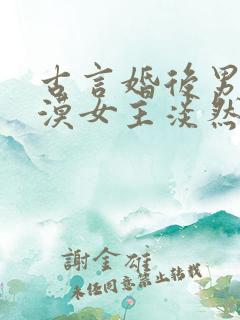 古言婚後男
漠女主淡然
謝金雄
未经同意禁止转载